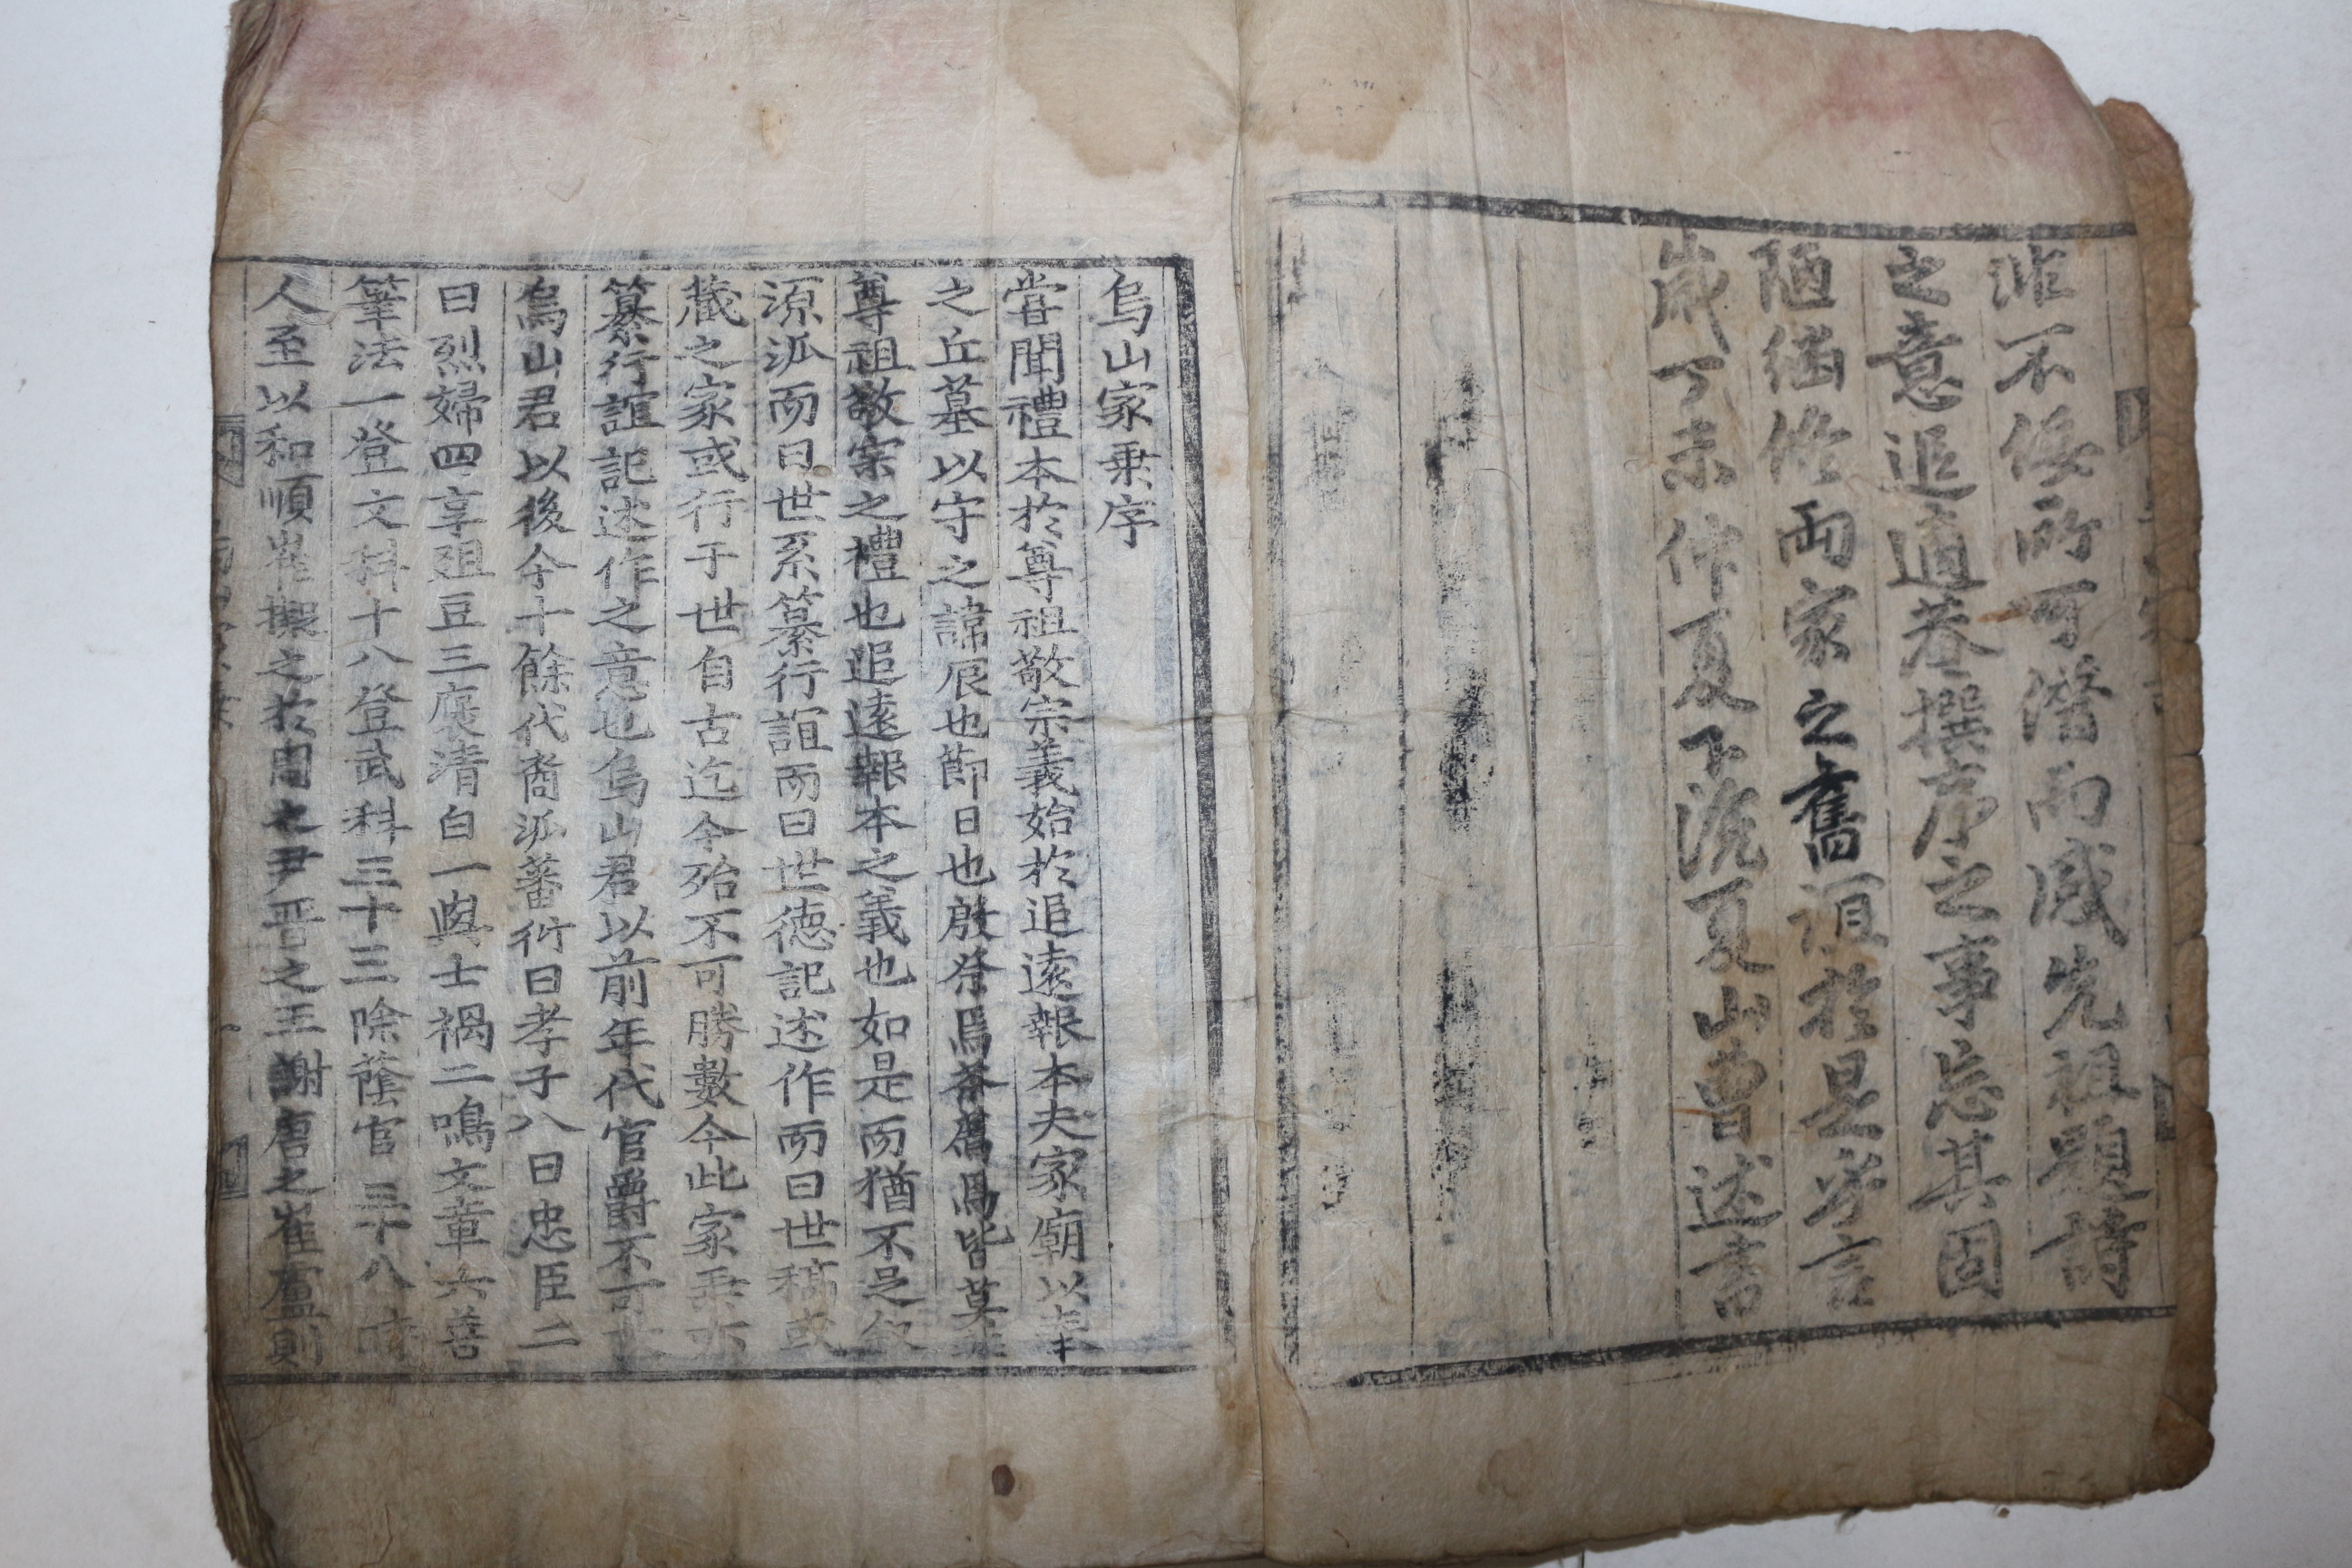 非不佞所可潛而感先祖題詩
之意追適菴撰序之事忘其固
陋猶修兩家之舊誼於是乎言
歲丁未仲夏下浣夏山曺述書
烏山家乘序
嘗聞禮本於尊祖敬宗義始於追遠報本夫家廟以奉
之丘墓以守之諱辰也節日也殷祭焉
皆莫非
尊祖敬宗之禮也追遠報本之義也如是而猶不足叙
源派而曰世系纂行誼而曰世德記述作而曰世稿或
藏之家或行于世自古迄今殆不可勝數今此家乘亦
纂行誼記述作之意也烏山君以前年代官爵不可
烏山君以後今十餘代裔派蕃衍曰孝子八曰忠臣二
曰烈婦四享俎豆三褒清白一與士禍二鳴文章六善
筆法一登文科十八登武科三十三除蔭官三十八
人至以和順崔擬之於周之尹晋之王謝唐之崔盧則